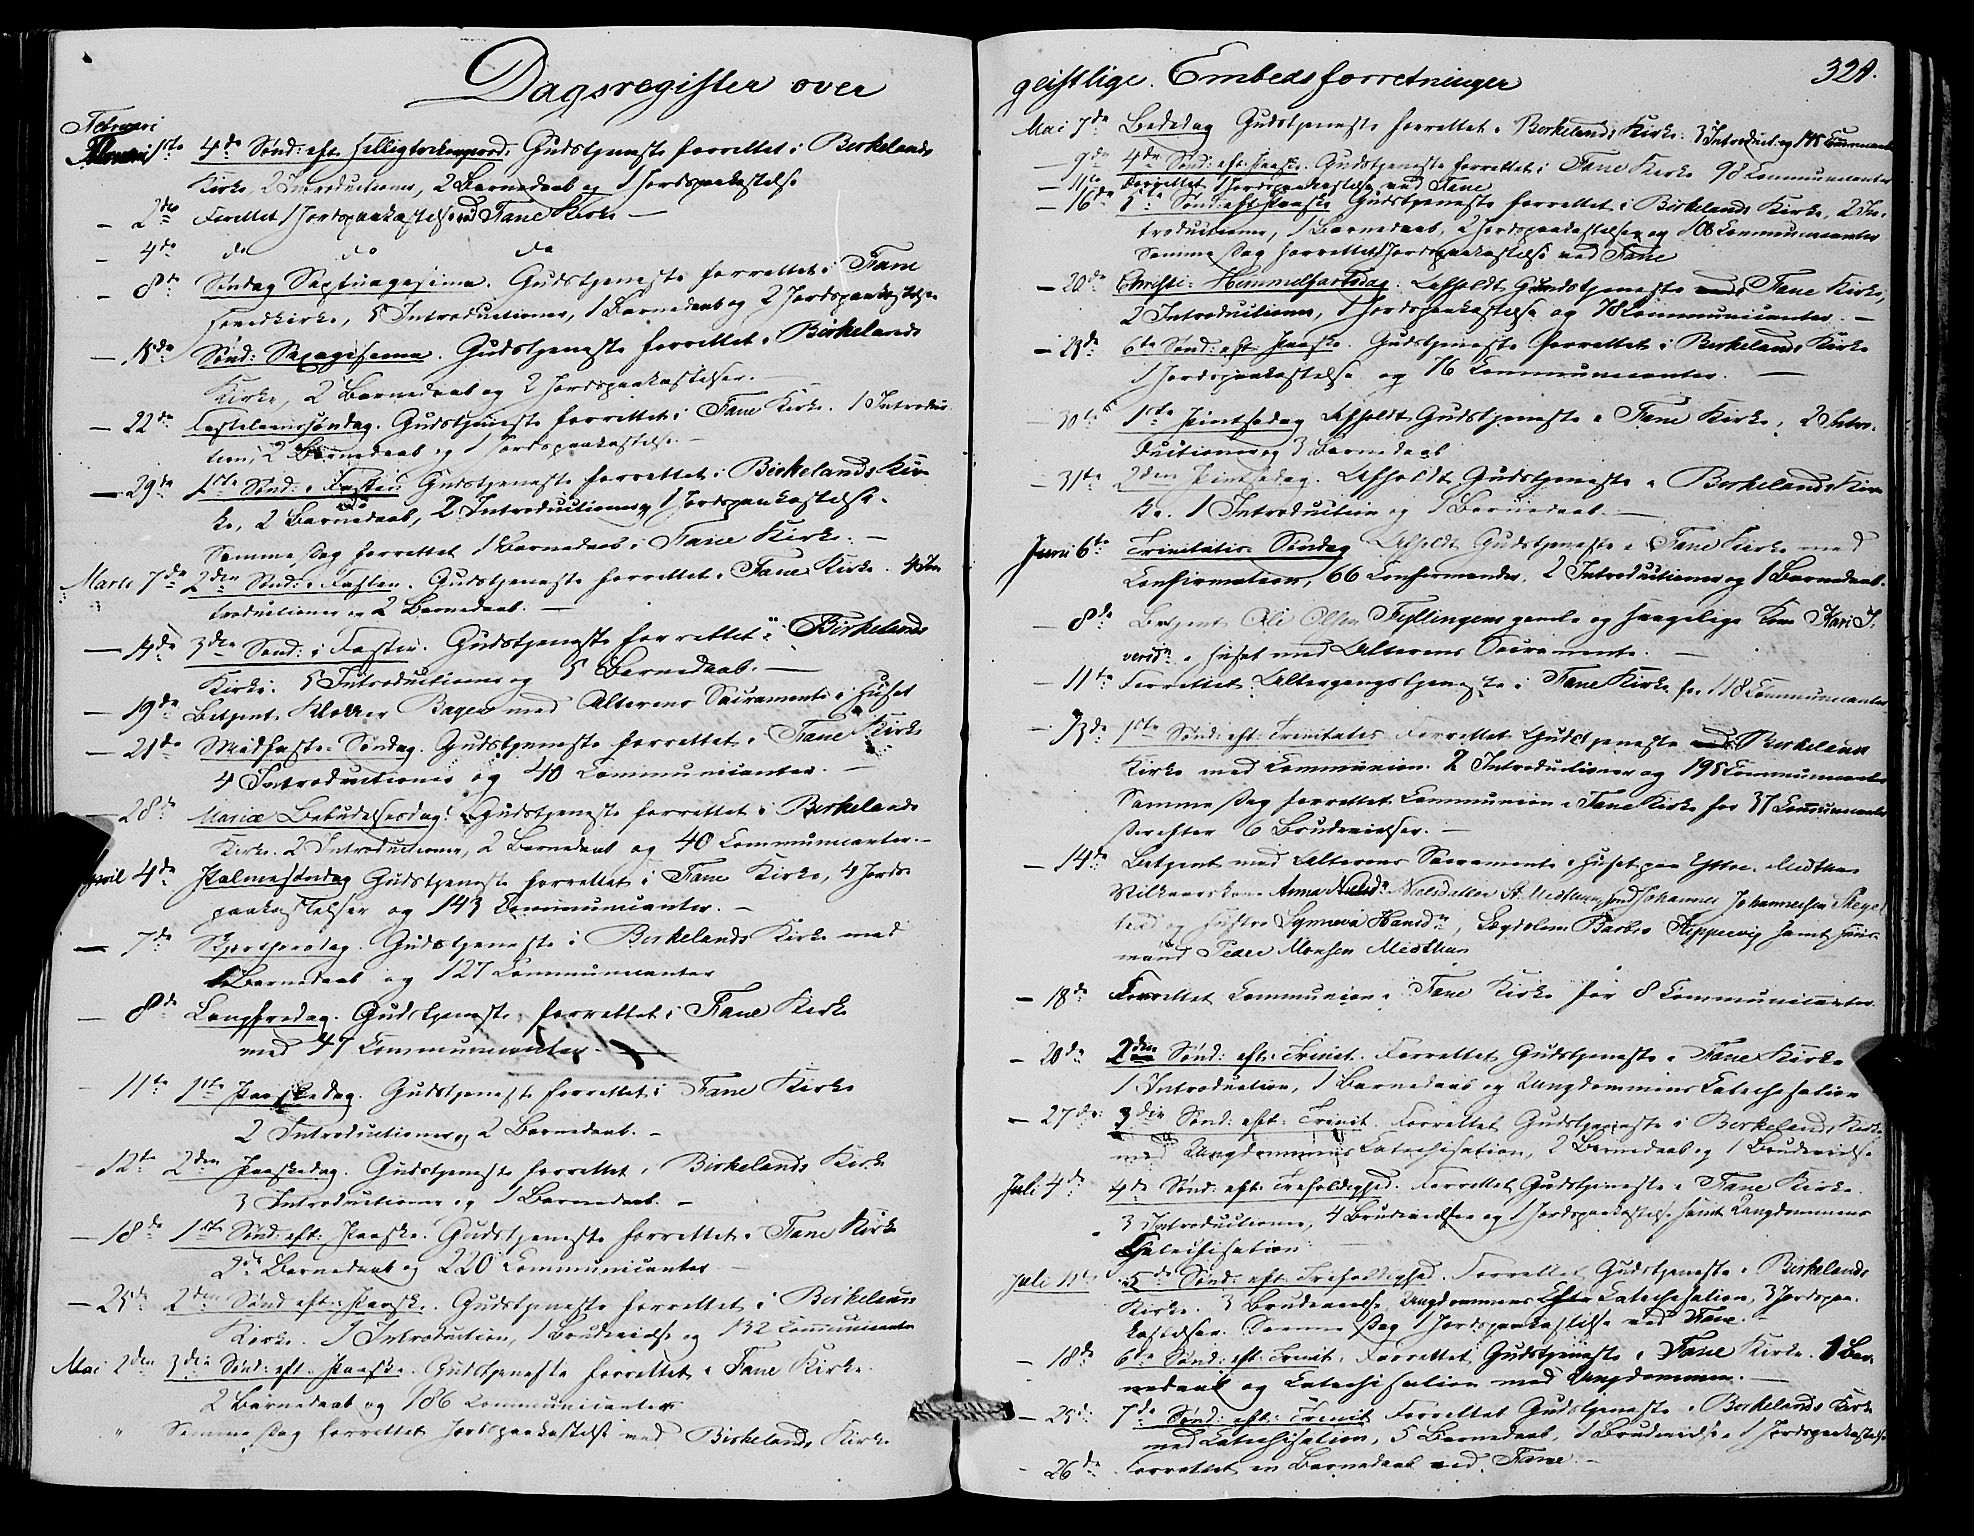 Dagsregister over
Februari
1ste 4de Sønd: eft. Helligtrekongersd. Gudstjeneste forrettet i Birkelands
Kirke, 2 Introductioner, 2 Barnedaab og 1 Jordspaakastelse
— 2den Forrettet 1 Jordspaakastelse ved Fane Kirke —
— 4de do do do
— 8de Søndag Septuagesima. Gudstjeneste forrettet i Fane
Hovedkirke, 5 Introductioner, 1 Barnedaab og 2 Jordspaakastelser
— 15de Sønd: Sexagesima. Gudstjeneste forrettet i Birkelands
Kirke, 2 Barnedaab og 2 Jordspaakastelser. —
— 22de Fastelavnssøndag. Gudstjeneste forrettet i Fane Kirke. 1 Introduc-
tion, 2 Barnedaab og 1 Jordspaakastelse. —
— 29de 1ste Sønd: i Fasten. Gudstjeneste forrettet i Birkelands Kir-
ke, 2 Barnedaab, 2 Introductioner og 1 Jordspaakastelse.
Samme Dag forrettet 1 Barnedaab i Fane Kirke. —
Marts 7de 2den Sønd: i Fasten. Gudstjeneste forrettet i Fane Kirke. 4 In-
troductioner og 2 Barnedaab. —
— 14de 3die Sønd: i Fasten. Gudstjeneste forrettet i Birkelands
Kirke. 5 Introductioner og 5 Barnedaab. —
— 19de Betjent Klokker Bagers med Alterens Sacramente i Huset
— 21de Midfaste-Søndag. Gudstjeneste forrettet i Fane Kirke
4 Introductioner og 40 Communicanter. —
28de Mariæ Bebudelsesdag. Gudstjeneste forrettet i Birkelands
Kirke. 2 Introductioner, 2 Barnedaab og 40 Communicanter. —
April 4de Palmesøndag Gudstjeneste forrettet i Fane Kirke, 4 Jords-
paakastelser og 143 Communicanter. —
— 7de Skjærthorsdag. Gudstjeneste i Birkelands Kirke med
1 Barnedaab og 127 Communicanter
— 8de Langfredag. Gudstjeneste forrettet i Fane Kirke
med 47 Communicanter. —
— 11te 1ste Paaskedag. Gudstjeneste forrettet i Fane Kirke
2 Introductioner og 2 Barnedaab. —
— 12te 2den Paaskedag. Gudstjeneste forrettet i Birkelands Kirke
3 Introductioner og 1 Barnedaab. —
— 18de 1ste Sønd: eft: Paaske. Gudstjeneste forrettet i Fane Kirke
2 Barnedaab og 220 Communicanter —
— 25de 2den Sønd: eft: Paaske. Gudstjeneste forrettet i Birkelands
Kirke. 1 Introduction, 1 Brudevielse og 132 Communicanter
Mai 2den 3die Sønd: eft: Paaske. Gudstjeneste forrettet i Fane Kirke
2 Barnedaab og 186 Communicanter
" Samme Dag forrettet Jordspaakastelse ved Birkelands Kirke
geistlige Embedsforretninger
321.
Mai 7de Bededag Gudstjeneste forrettet i Birkelands Kirke. 3 Introduct. og Communicanter
— 9de 4de Sønd: eft: Paaske. Gudstjeneste forrettet i Fane Kirke 98 Communicanter
— 11te Forrettet 1 Jordspaakastelse ved Fane
— 16de 5te Sønd: eft: Paaske. Gudstjeneste forrettet i Birkelands Kirke, 2 In-
troductioner, 1 Barnedaab, 2 Jordspaakastelser og 108 Communicanter
Samme Dag forrettet 1 Jordspaakastelse ved Fane
— 20de Christi Himmelfartsdag. Afholdt Gudstjeneste Fane Kirke,
2 Introductioner, 1 Jordspaakastelse og 78 Communicanter. —
— 23de 6te Sønd: eft: Paaske. Gudstjeneste forrettet i Birkelands Kirke
1 Jordspaakastelse og 76 Communicanter. —
— 30te 1ste Pintsedag Afholdt Gudstjeneste i Fane Kirke, 2 Intro-
ductioner og 3 Barnedaab
— 31te 2den Pintsedag. Afholdt Gudstjeneste i Birkelands Kir-
ke. 1 Introduction og 1 Barnedaab. —
Juni 6te Trinitatis Søndag Afholdt Gudstjeneste i Fane Kirke med
Confirmation, 66 Confirmander, 2 Introductioner og 1 Barnedaab.
— 8de Betjent Ole Olsen Fyllingens gamle og svagelige Kone Kari I-
versdr i Huset med Alterens Sacramente. —
— 11te Forrettet Altergangstjeneste i Fane Kirke for 118 Communicanter
— 13de 1ste Sønd: eft: Trinitatis Forrettet Gudstjeneste Birkelands
Kirke med Communion. 2 Introductioner og 195 Communicanter
Samme Dag forrettet Communion i Fane Kirke for 37 Communicanter
derefter 6 Brudevielser. —
— 14de Betjent med Alterens Sacramente i Huset paa Midthun
Vilkaarskone Anna Nielsdatter Midthun, Johannes Johannessen Skjol-
og Hustru Synneva Hansdr, Barbro samt Huus-
mand Peder Monsen Midthun
— 18de Forrettet Communion i Fane Kirke for 8 Communicanter
— 20de 2den Sønd: eft: Trinit. Forrettet Gudstjeneste i Fane Kirke
1 Introduction, 1 Barnedaab og Ungdommens Catechisation
— 27de 3die Sønd: eft: Trinit. Forrettet Gudstjeneste i Birkelands Kirke
med Ungdommens Catechisation, 2 Barnedaab og 1 Brudevielse
Juli 4de 4de Sønd: eft: Trefoldighed. Forrettet Gudstjeneste i Fane Kirke.
3 Introductioner, 4 Brudevielser og 1 Jordspaakastelse samt Ungdommens
Catechisation
Juli 11te 5te Sønd: eft: Trefoldighed. Forrettet Gudstjeneste i Birkelands
Kirke. 3 Brudevielse, Ungdommens Catechisation, 3 Jordspaa-
kastelser. Samme Dag 1 Jordspaakastelse ved Fane. —
— 18de 6te Sønd: eft: Trinit. Forrettet Gudstjeneste i Fane Kirke. 1 Bar-
nedaab og Catechisation med Ungdommen. —
— 25de 7de Sønd: eft: Trinit Forrettet Gudstjeneste i Birkelands Kirke
med Catechisation, 5 Barnedaab, 1 Brudevielse, 1 Jordspaakastelse
— 26de Forrettet en Barnedaab ved Fane. —